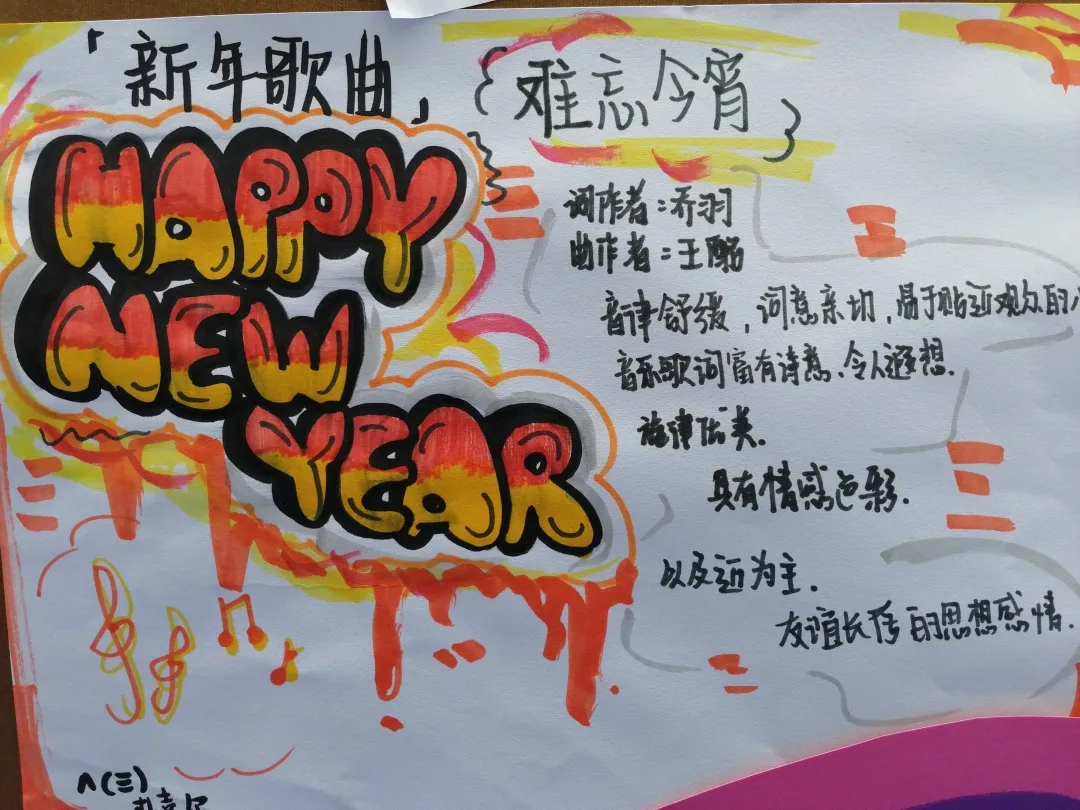 「新年歌曲」
{难忘今宵}
HAPPY
NEW
YEAR
词作者：乔羽
曲作者：王酩
音律舒缓，词意亲切，易于贴近观众的
音乐歌词富有诗意、令人遐想.
旋律优美.
具有情感色彩.
以及近为主.
友谊长传的思想感情.
八(三)